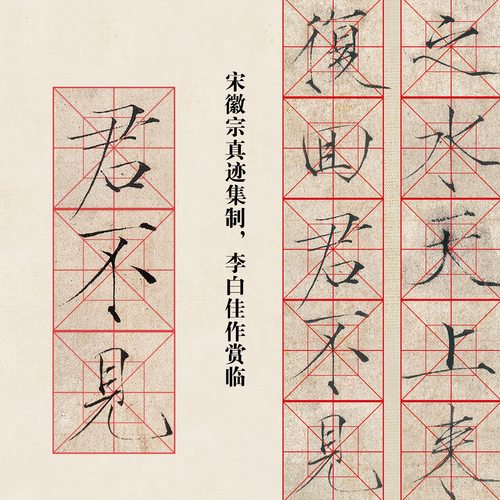 之水天上来
復回君不見
宋徽宗真迹集制，李白佳作赏临
君不見